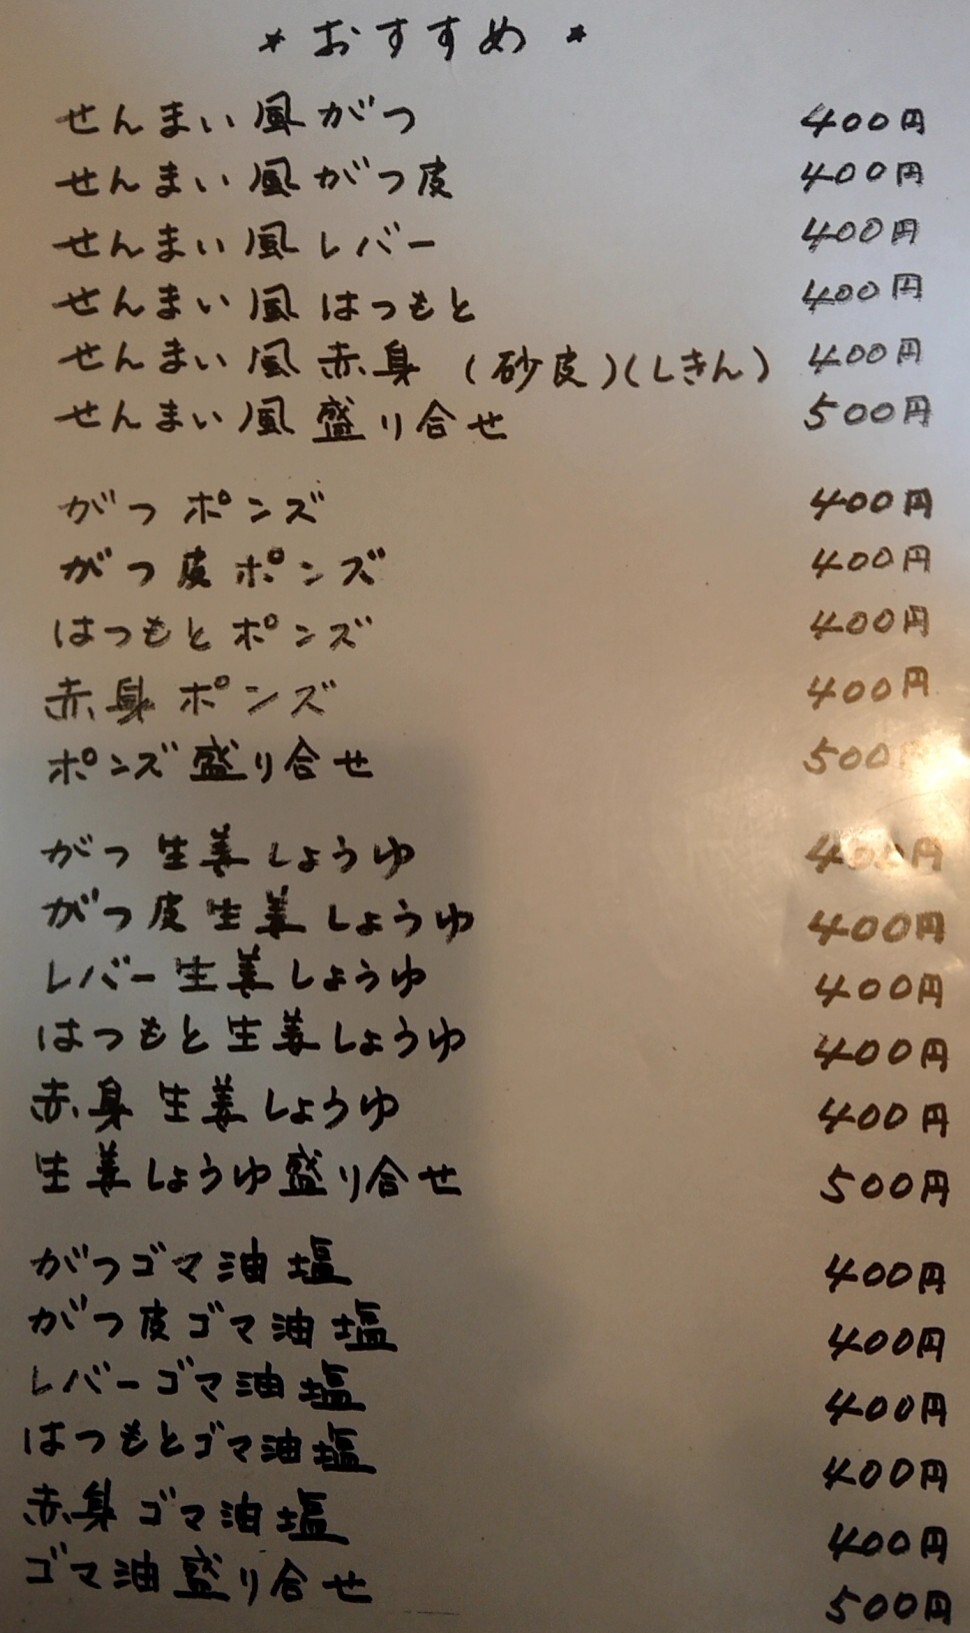 * おすすめ *
せんまい風がつ 400円
せんまい風がつ皮 400円
せんまい風レバー 400円
せんまい風はつもと 400円
せんまい風赤身 (砂皮)(しきん) 400円
せんまい風盛り合せ 500円
がつポンズ 400円
がつ皮ポンズ 400円
はつもとポンズ 400円
赤身ポンズ 400円
ポンズ盛り合せ 500円
がつ生姜しょうゆ 400円
がつ皮生姜しょうゆ 400円
レバー生姜しょうゆ 400円
はつもと生姜しょうゆ 400円
赤身生姜しょうゆ 400円
生姜しょうゆ盛り合せ 500円
がつゴマ油塩 400円
がつ皮ゴマ油塩 400円
レバーゴマ油塩 400円
はつもとゴマ油塩 400円
赤身ゴマ油塩 400円
ゴマ油盛り合せ 500円